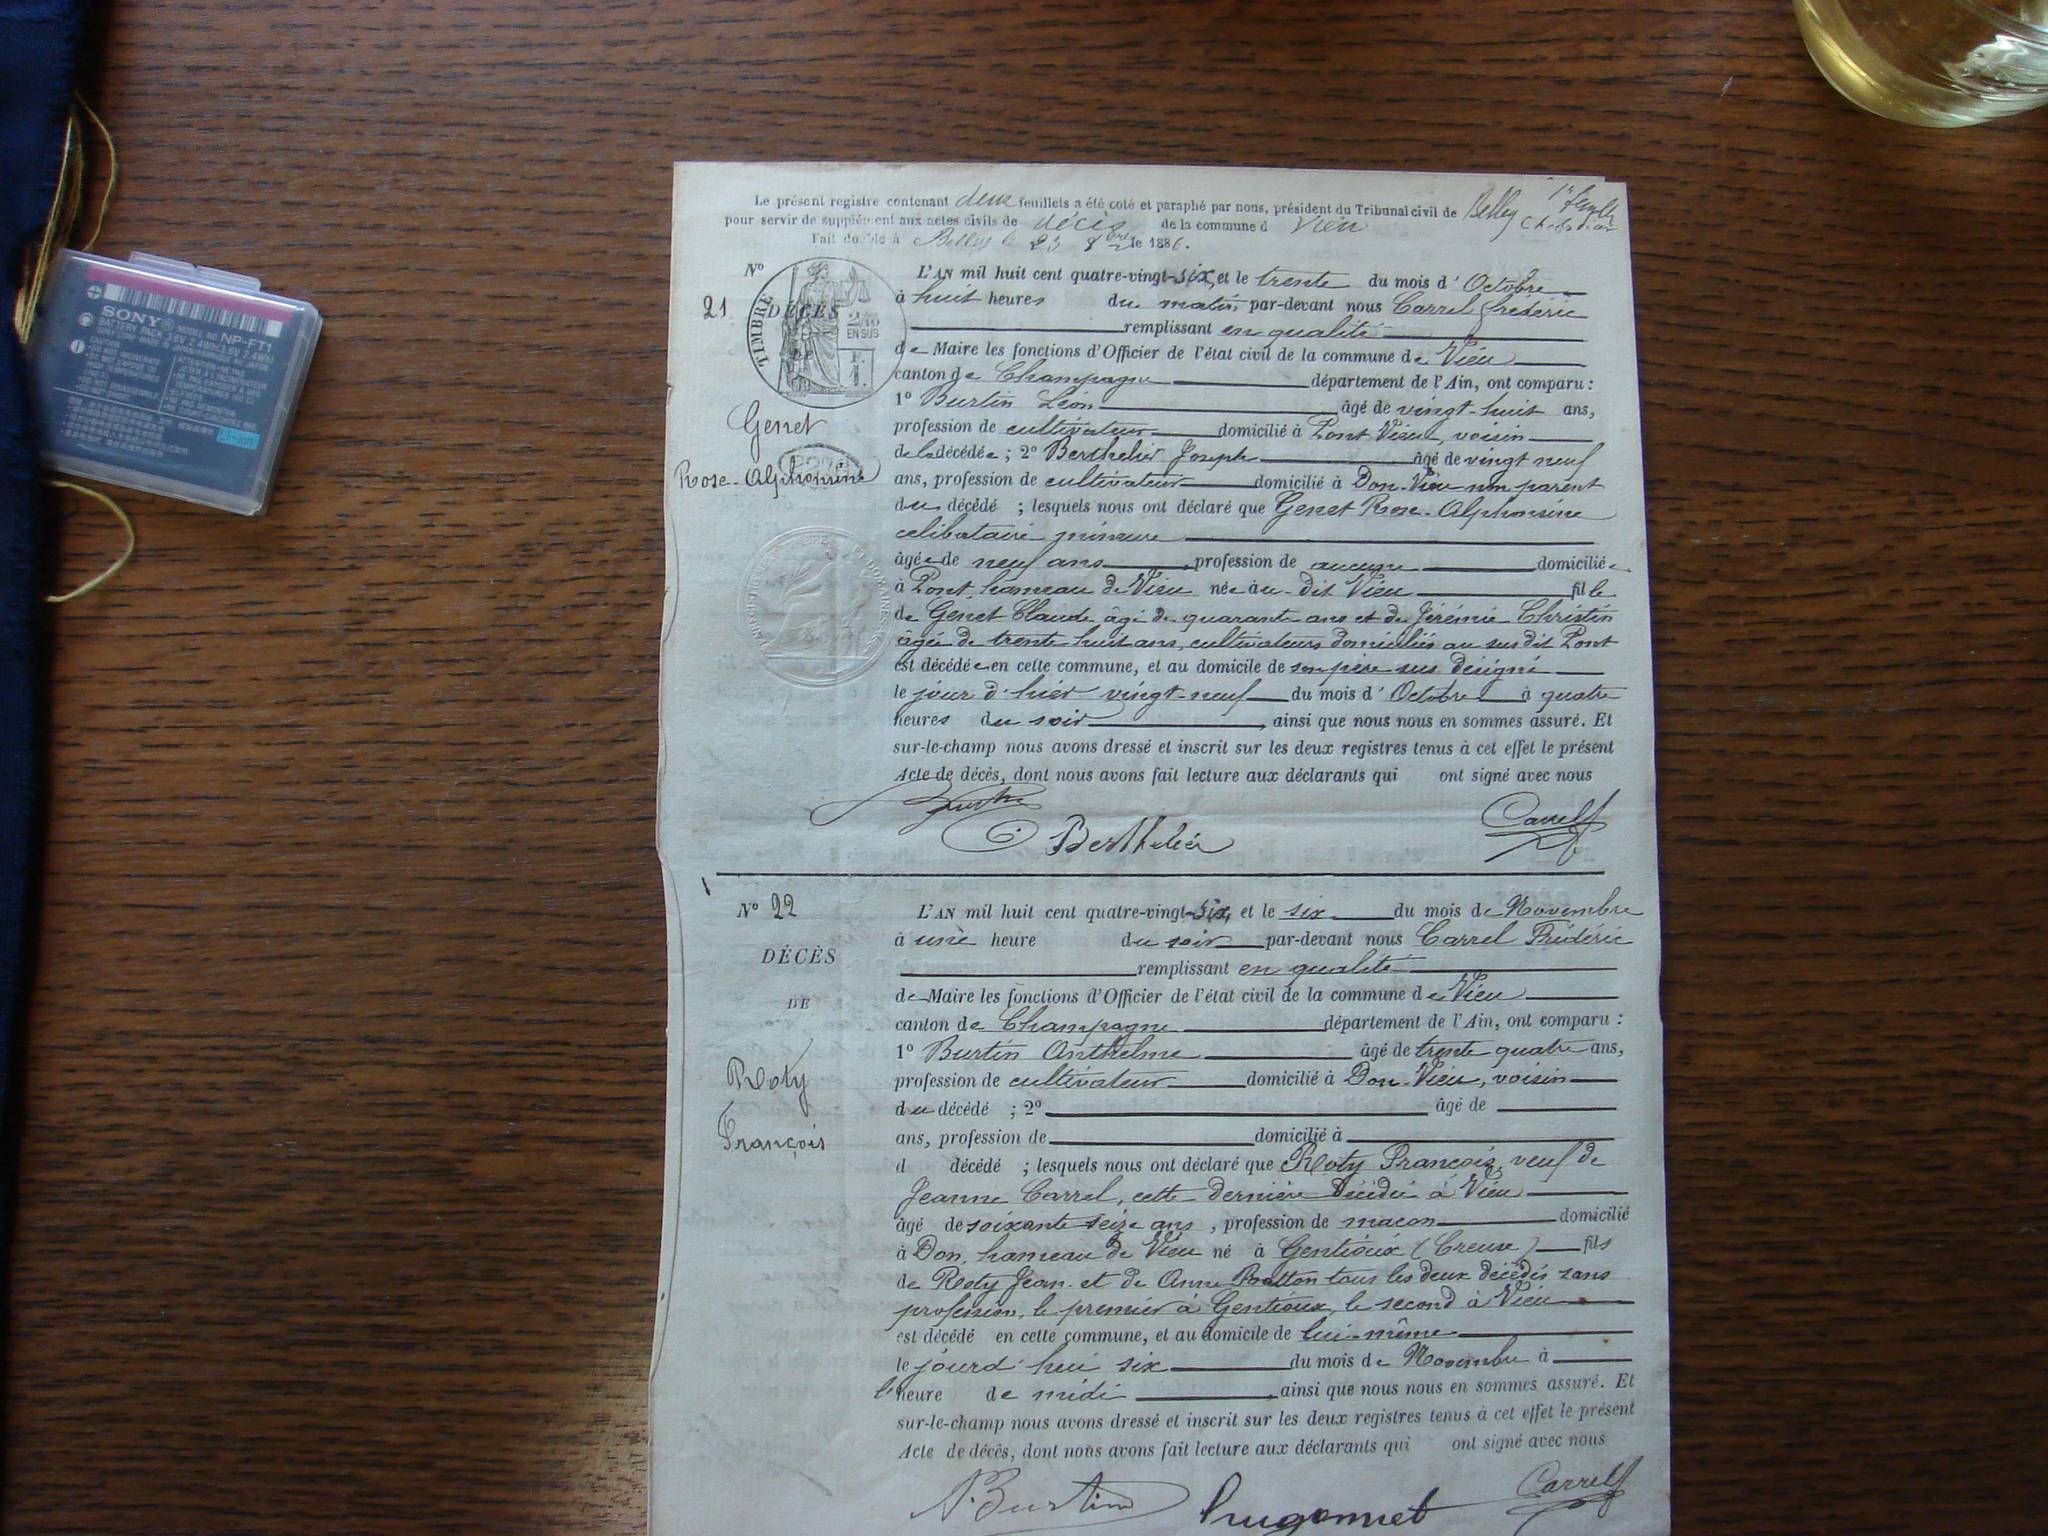 SONY®
BATTERY PACK MODEL NO. NP-FT1
3.6V 2.4Wh
CAUTION
Le présent registre contenant deux feuillets a été coté et paraphé par nous, président du Tribunal civil de Belley
pour servir de supplément aux actes civils de décès de la commune d Vieu
Fait double à Belley le 23 8bre le 1886.
N° 21
DÉCÈS
DE
TIMBRE
2/10
EN SUS
F.
1.
Genet
Rose-Alphonsine
L'AN mil huit cent quatre-vingt-six, et le trente du mois d' Octobre
à huit heures du matin, par-devant nous Carrel frédéric
remplissant en qualité
de Maire les fonctions d'Officier de l'état civil de la commune de Vieu
canton de Champagne département de l'Ain, ont comparu :
1° Burtin Léon âgé de vingt-huit ans,
profession de cultivateur domicilié à Pont Vieu, voisin
de la décédée ; 2° Berthelier Joseph âgé de vingt neuf
ans, profession de cultivateur domicilié à Don-Vieu non parent
du décédé ; lesquels nous ont déclaré que Genet Rose-Alphonsine
celibataire mineure
âgée de neuf ans, profession de aucune domiciliée
à Pont, hameau de Vieu née au-dit Vieu fille
de Genet Claude âgé de quarante ans et de Jérémie Christin
âgée de trente huit ans, cultivateurs domiciliés au sus dit Pont
est décédée en cette commune, et au domicile de son père sus désigné
le jour d'hier vingt-neuf du mois d' Octobre à quatre
heures du soir, ainsi que nous nous en sommes assuré. Et
sur-le-champ nous avons dressé et inscrit sur les deux registres tenus à cet effet le présent
Acte de décès, dont nous avons fait lecture aux déclarants qui ont signé avec nous
Burtin
Berthelier
Carrel f
N° 22
DÉCÈS
DE
Roty
François
L'AN mil huit cent quatre-vingt-six, et le six du mois de Novembre
à une heure du soir par-devant nous Carrel Frédéric
remplissant en qualité
de Maire les fonctions d'Officier de l'état civil de la commune de Vieu
canton de Champagne département de l'Ain, ont comparu :
1° Burtin Anthelme âgé de trente quatre ans,
profession de cultivateur domicilié à Don-Vieu, voisin
du décédé ; 2° âgé de
ans, profession de domicilié à
d décédé ; lesquels nous ont déclaré que Roty François, veuf de
Jeanne Carrel, cette dernière décédée à Vieu
âgé de soixante seize ans, profession de maçon domicilié
à Don, hameau de Vieu né à Gentioux (Creuse) fils
de Roty Jean et de Anne tous les deux décédés sans
profession, le premier à Gentioux, le second à Vieu
est décédé en cette commune, et au domicile de lui-même
le jourd'hui six du mois de Novembre à
l'heure de midi, ainsi que nous nous en sommes assuré. Et
sur-le-champ nous avons dressé et inscrit sur les deux registres tenus à cet effet le présent
Acte de décès, dont nous avons fait lecture aux déclarants qui ont signé avec nous
A. Burtin
hugonnet
Carrel f